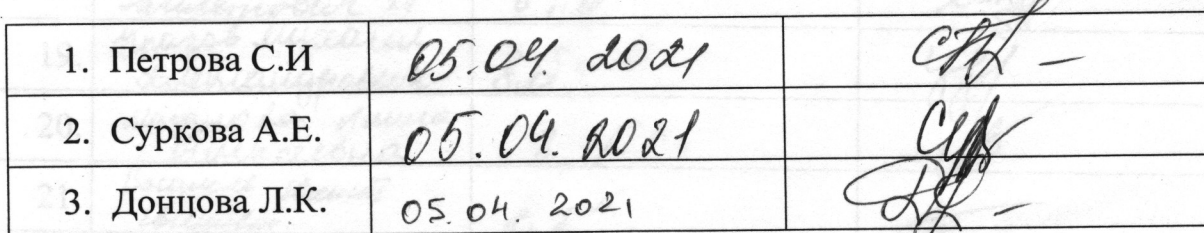 1. Петрова С.И 05.04.2021
2. Суркова А.Е. 05.04.2021
3. Донцова Л.К. 05.04.2021